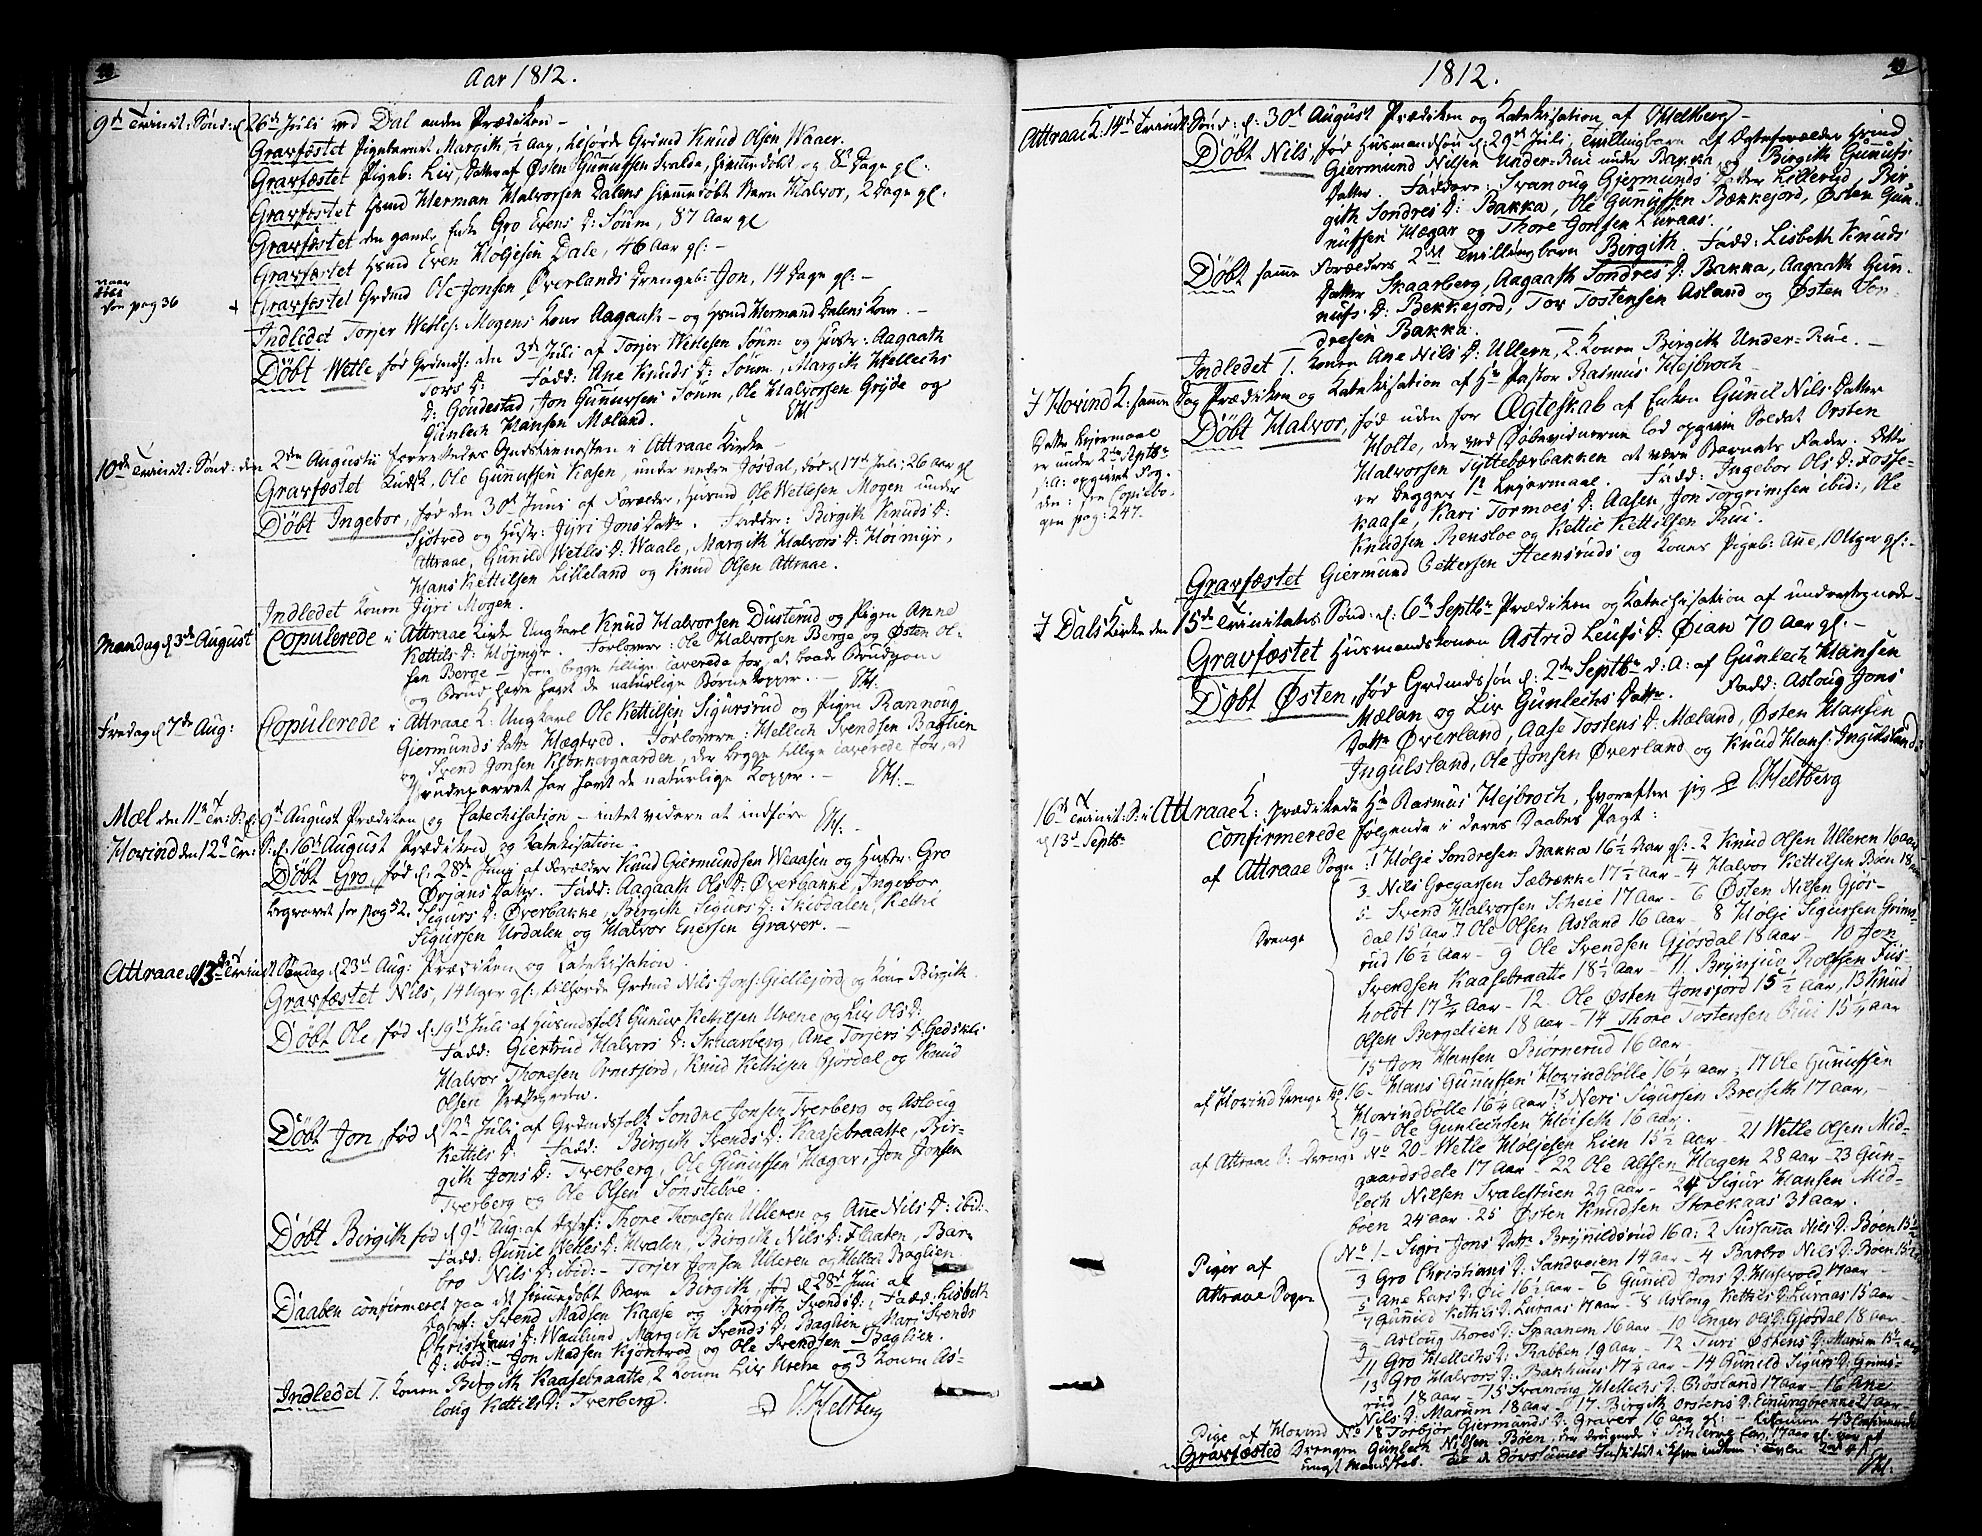 Aar 1812.
9d Trinit: Sønd: d: 26de Juli ved Dal anden Prædiken –
Gravfæstet Pigebarnet Margith ½ Aar, tilhørde Grdmd Knud Olsen Waaer.
Gravfæstet Pigeb: Liv, Datter af Østen Gunnufsen Svalde, hiemmedøbt og 8te Dage gl:
Gravfæstet Hsmd Herman Halvorsen Dalens hiemmedøbt Barn Halvor, 2 Dage gl:
Gravfæstet den gamle Enke Gro Evens D: Søum, 87 Aar gl
Gravfæstet Hsmd Even Høljesen Dale, 46 Aar gl: –
Gravfæstet Grdmd Ole Jonsen Øverlands Drengeb: Jon, 14 Dage gl: –
døbt
see pag 36
Indledet Torjer Wetles: Mogens Kone Aagaath – og Hsmd Hermand Dalens Kone. –
Døbt Wetle fød Grdmds: den 3de Juli af Torjer Wetlesen Søum og Hustr: Aagaath
Tors D: Fadd: Ane Knuds D: Søum, Margith Hellechs
D: Goudestad, Jon Gunnufsen Søum, Ole Halvorsen Gryde og
Gunlech Hansen Mæland.
10de Trinit: Sønd: den 2den Augustii forrettedes Gudstienesten i Attraae Kirke –
Gravfæstet Ole Gunnufsen Kasen, under nedre Josdal, død d 17de Juli; 26 Aar gl
Døbt Ingebor, fød den 30te Juni af Forældr, Husmd Ole Wetlesen Mogen under
Sjøtved og Hustr: Jyri Jons Dattr. Faddr: Birgith Knuds D:
Attraae, Gunild Wetles D: Waale, Margith Halvors D: Høimyr,
Hans Kettilsen Lilleland og Knud Olsen Attraae.
Indledet Konen Jyri Mogen.
Mandag d 3de August Copulerede i Attraae Kirke Ungkarl Knud Halvorsen Dusterud og Pigen Anne
Kettils D: Højmyr. Forlovere: Ole Halvorsen Berge og Østen Ol-
sen Berge – som begge tillige caverede for, at baade Brudgom
og Brud have havt de naturlige Børnekopper. –
Fredag d 7de Aug: Copulerede i Attraae K: Ungkarl Ole Kettilsen Sigursrud og Pigen Rannoug
Giermunds Dattr Hægtved. Forlovere: Hellech Svendsen Baglien
og Svend Jonsen Klokkergaarden, der begge tillige caverede for, at
Brudeparret har havt de naturlige Kopper. –
Mæl den 11te Tr: S: d: 9de August Prædiken og Catechisation – intet videre at indføre
Hovind den 12te Tr: S: d: 16de August Prædiken og Katekisation.
Døbt Gro, fød d: 28de Juni af Forældre Knud Giermundsen Waaasen og Hustr: Gro
Ørjans Datter. Fadd: Aagaath Ols D: Øverbakke, Ingebor
Begravet see pag 52. Sigurs D: Øverbakke, Birgith Sigurs D: Skeodalen, Kettil
Sigursen Urdalen og Halvor Enersen Graver. –
Attraae d 13de Trinit Søndag d 23de Aug: Prædiken og Katekisation –
Gravfæstet Nils, 14 Uger gl:, tilhørde Grdmd Nils Jons: Giellejord og Kone Birgith.
Døbt Ole fød d: 19de Juli af Husmdsfolk Gunuv Kettilsen Urene og Liv Ols D:
Fadd: Giertrud Halvors D: Skaarberg, Ane Torjers D: Gedskli
Halvor Thoresen Ornesfjord, Knud Kettilsen Gjøsdal og Knud
Olsen Præstgrden.
Døbt Jon, fød d 12te Juli af Grdmdsfolk Sondre Jonsen Tverberg og Asloug
Kettils D: Fadd: Birgith Svends D: Kaasebraatte, Bir-
gith Jons D: Tverberg, Ole Gunnufsen Hægar, Jon Jonsen
Tverberg og Ole Olsen Sønsteboe.
Døbt Birgith fød d 9de Aug: af Thore Thoresen Ulleren og Ane Nils D: ibid: –
Fadd: Gunnil Wetles D: Hvalen, Birgith Nils D: Flaaten, Bar-
bro Nils D: ibid: – Torjer Jonsen Ulleren og Hellech Baglien
Daaben confirmeret paa det hiemmedøbt Barn Birgith, fød d 28de Juni af
Svend Madsen Kaase og Birgith Svends D: Fadd: Lisbeth
Christiens D: Waalund, Margith Svends D: Baglien, Mari Svends
D: ibid: – Jon Madsen Kjøntvod og Ole Svendsen – Baglien.
Indledet 1. Konen Birgith Kaasebraatte, 2 Konen Liv Urene og 3 Konen As-
loug Kettils D: Tverberg. V. Heltberg
1812. 49
Attraae K: 14de Trinit: Sønd: d: 30te August Prædiken og Katekisation af VHeltberg –
Døbt Nils, fød Husmandssøn d: 29de Juli, Tvillingbarn af Ægteforældre Hsmd
Giermund Nilsen Under-Rue under Bakka og Birgith Gunufs
Datter. Faddere: Svanoug Giermunds Datter Lillerud, Bir
gith Sondres D: Bakka, Ole Gunnufsen Bækkejord, Østen Gun-
nufsen Hægar og Thore Jonsen Luraas.
Døbt samme Forældres 2det Tvillingbarn Birgith. Fadd: Lisbeth Knuds
Datter Skaarberg, Aagaath Sondres D: Bakka, Aagaath Gun-
nufs D: Bekkejord, Tov Tostensen Asland og Østen Son
dresen Bakka.
Indledet 1. Konen Ane Nils D: Ullern, 2. Konen Birgith Under-Rue. –
I Hovind K: samme Dag Prædiken og Katekisation af Hr Pastor Rasmus Hejbroch –
Døbt Halvor, fød uden for Ægteskab af Enken Gunnil Nils Datter
Holte, der ved Døbevidnerne lod opgive Soldat Orsten
Halvorsen Tyttebærbakken at være Barnets Fader. Dette
er begges 1te Lejermaal. Fadd: Ingebor Ols D: Fosse-
kaase, Kari Tormoes D: Aasen, Jon Torgrimsen ibid:, Ole
Knudsen Rensloe og Kettil Kettilsen Rui.
Dette Lejermaal
er under 2den Septbr
d: A: opgivet Fog-
den: see Copiebo-
gen pag: 247.
Gravfæstet Giermund Pettersen Steensruds og Kones Pigeb: Ane, 10 Uger gl: –
I Dals Kirke den 15de Trinitates Sønd: d: 6te Septbr Prædiken og Katechisation af undertegnede –
Gravfæstet Husmandskonen Astrid Leufs D: Øian 70 Aar gl: –
Døbt Østen, fød Grdmdssøn d: 2den Septbr d: A: af Gunlech Hansen
Mælan og Liv Gunlechs Dattr. Fadd: Asloug Jons
Dattr Øverland, Aase Tostens D: Mæland, Østen Hansen
Ingulsland, Ole Jonsen Øverland og Knud Hans: Ingulsland
VHeltberg
16de Trinit: S: i Attraae K: prædikede Hr Rasmus Hejbroch, hvorefter jeg
d 13de Septbr Confirmerede følgende i deres Daabes Pagt:
af Attraae Sogn: 1 Hølje Sondresen Bakka 16½ Aar gl: – 2 Knud Olsen Ulleren 16 Aar
3. Nils Gregarsen Sælrække 17½ Aar – 4 Halvor Kettilsen Bøen 18 Aar
5 – Svend Halvorsen Scheie 17 Aar – 6 Østen Nilsen Gjøs-
Drenge
dal 15 Aar 7 Ole Olsen Asland 16 Aar – 8 Hølje Sigursen Grims-
rud 16½ Aar – 9 Ole Svendsen Gjøsdal 18 Aar – 10 Jon
Svendsen Kaasebraatte 18½ Aar – 11. Brynjuv Rolfsen Fus-
holdt 17¾ Aar – 12. Ole Østen Jonsjord 15½ Aar, 13 Knud
Olsen Bergelien 18 Aar – 14 Thore Tostensen Rui 15¼ Aar
15 Jon Hansen Bjørnerud 16 Aar.
af Hovind Drenge No 16 – Hans Gunnufsen Hovindbølle 16¼ Aar, 17 Ole Gunufsen
Hovindbølle 16¼ Aar 18 Neri Sigursen Breiseth 17 Aar, –
19 – Ole Gunlechsen Høiseth 16 Aar.
af Attraae S: Drenge No 20 – Wetle Høljesen Lien 15½ Aar – 21 Wetle Olsen Mid-
gaardsdele 17 Aar – 22 Ole Alfsen Hagen 28 Aar – 23 Gun-
lech Nilsen Svalestuen 29 Aar – 24 Sigur Hansen Mid-
bøen 24 Aar. 25 Østen Knudsen Storekaas 31 Aar.
Piger af
Attraae Sogn
No 1 – Sigri Jons Dattr Brynildsrud 16 a: 2 Susanna Nels D: Bøen 15½
3 Gro Christians D: Sandveien 14 Aar – 4 Barbro Nils D: Bøen
5 Ane Lars D: Øie 16½ Aar – 6 Gunild Jons D: Haservold 17 Aar –
7 Gunild Kettils D: Luraas 17 Aar – 8 Asloug Kettils D: Luraas 15 Aar –
9 – Asloug Bores D: Spaanem 16 Aar – 10 Enger Ols D: Gjøsdal 18 Aar
11 Gro Hellechs D: Rabben 19 Aar – 12 Turi Østens D: Marum 15½ Aar
13 Gro Halvors D: Bakhuus 17½ Aar – 14 Gunild Sigurs D: Grims-
rud 18 Aar – 15 Svanoug Hellechs D: Bøsland 17 Aar – 16 Ane
Nils D: Marum 18 Aar – 17. Birgith Orstens D: Einungbrekke 21 Aar –
Pige af Hovind No 18 Torbjør Giermunds D: Graver 16 Aar gl: –
Gravfæsted Drengen Gunlech Nilsen Bøen, der 17 Aar gl:
ungt Mandskab.